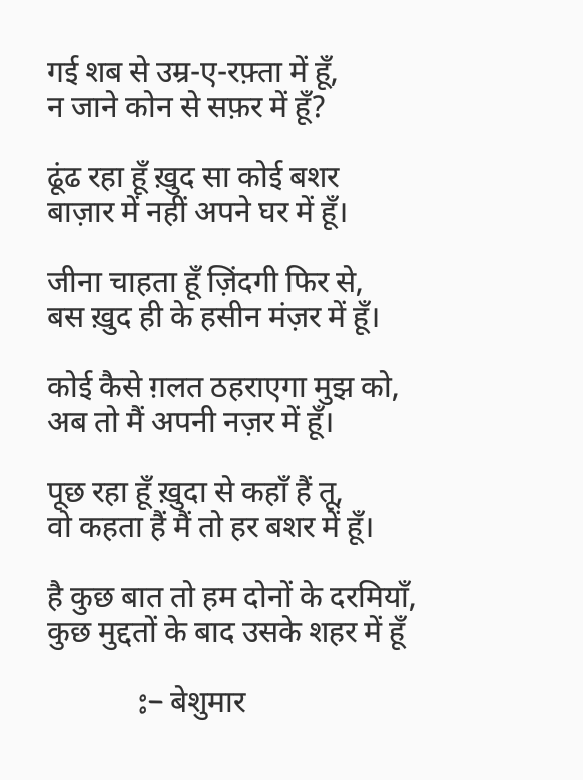 गई शब से उम्र-ए-रफ़्ता में हूँ,
न जाने कोन से सफ़र में हूँ?
ढूंढ रहा हूँ ख़ुद सा कोई बशर
बाज़ार में नहीं अपने घर में हूँ।
जीना चाहता हूँ ज़िंदगी फिर से,
बस ख़ुद ही के हसीन मंज़र में हूँ।
कोई कैसे ग़लत ठहराएगा मुझ को,
अब तो मैं अपनी नज़र में हूँ।
पूछ रहा हूँ ख़ुदा से कहाँ हैं तू,
वो कहता हैं मैं तो हर बशर में हूँ।
है कुछ बात तो हम दोनों के दरमियाँ,
कुछ मुद्दतों के बाद उसके शहर में हूँ
ः– बेशुमार